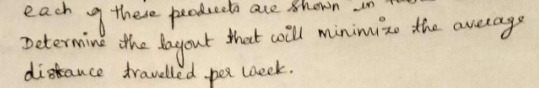 each of these products are shown in
Determine the layout that will minimize the average
distance travelled per week.